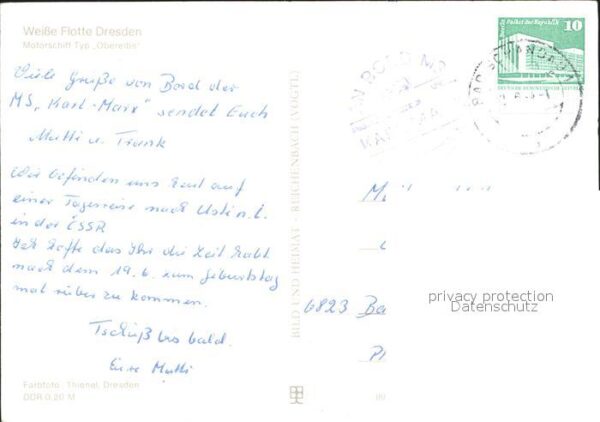 Weiße Flotte Dresden
Motorschiff Typ „Oberelbe"
Viele Grüße von Bord der
MS „Karl-Marx" sendet Euch
Mutti u. Frank
Wir befinden uns auf
einer Tagesreise nach Usti n. L.
in der ČSSR
Ich hoffe das Ihr die Zeit habt
nach dem 19.6. zum Geburtstag
mal rüber zu kommen.
Tschüß bis bald.
Eure Mutti
Farbfoto: Thienel, Dresden
DDR 0,20 M
BILD UND HEIMAT · REICHENBACH (VOGTL)
AN BORD MS
KARL MARX
Berlin, Palast der Republik
10
DEUTSCHE DEMOKRATISCHE REPUBLIK
BAD SCHANDAU 1
6823 Ba
privacy protection
Datenschutz